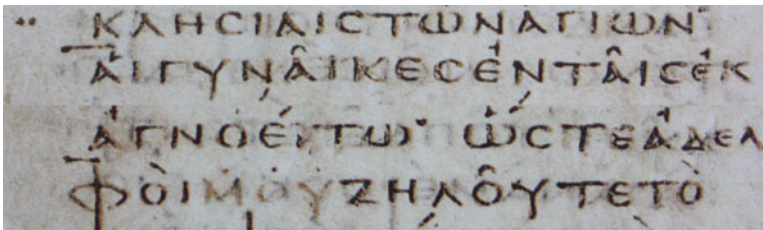 ΚΛΗϹΙΑΙϹΤΩΝΑΓΙΩΝ
ΑΙΓΥΝΑΙΚΕϹΕΝΤΑΙϹΕΚ
ΑΓΝΟΕΙΤΩ· ΩϹΤΕΑΔΕΛ
ΦΟΙΜΟΥΖΗΛΟΥΤΕΤΟ